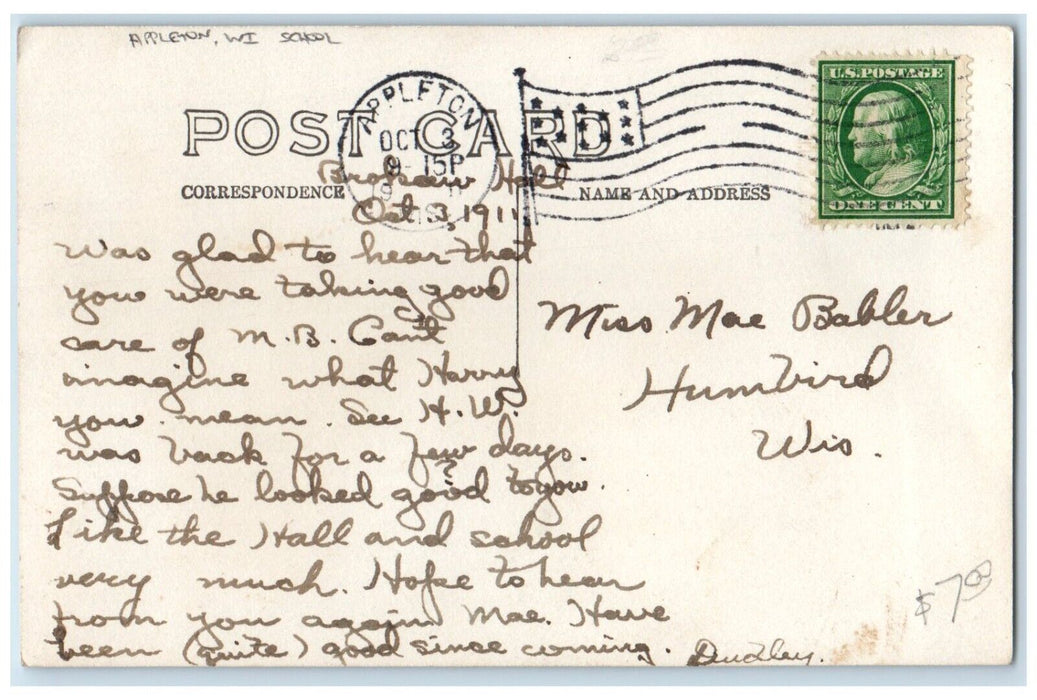 APPLETON, WI SCHOOL
POST CARD
APPLETON
OCT 3
8-15P
U.S. POSTAGE
ONE CENT
CORRESPONDENCE
NAME AND ADDRESS
Brokaw Hall
Oct. 3, 1911,
Was glad to hear that
you were taking good
care of M.B. Can't
imagine what Harry
you mean. See H.W.
was back for a few days.
Suppose he looked good to you?
Like the Hall and school
very much. Hope to hear
from you again Mae. Have
been (quite) good since coming. Dudley.
Miss Mae Babler
Humbird
Wis.
$7.00